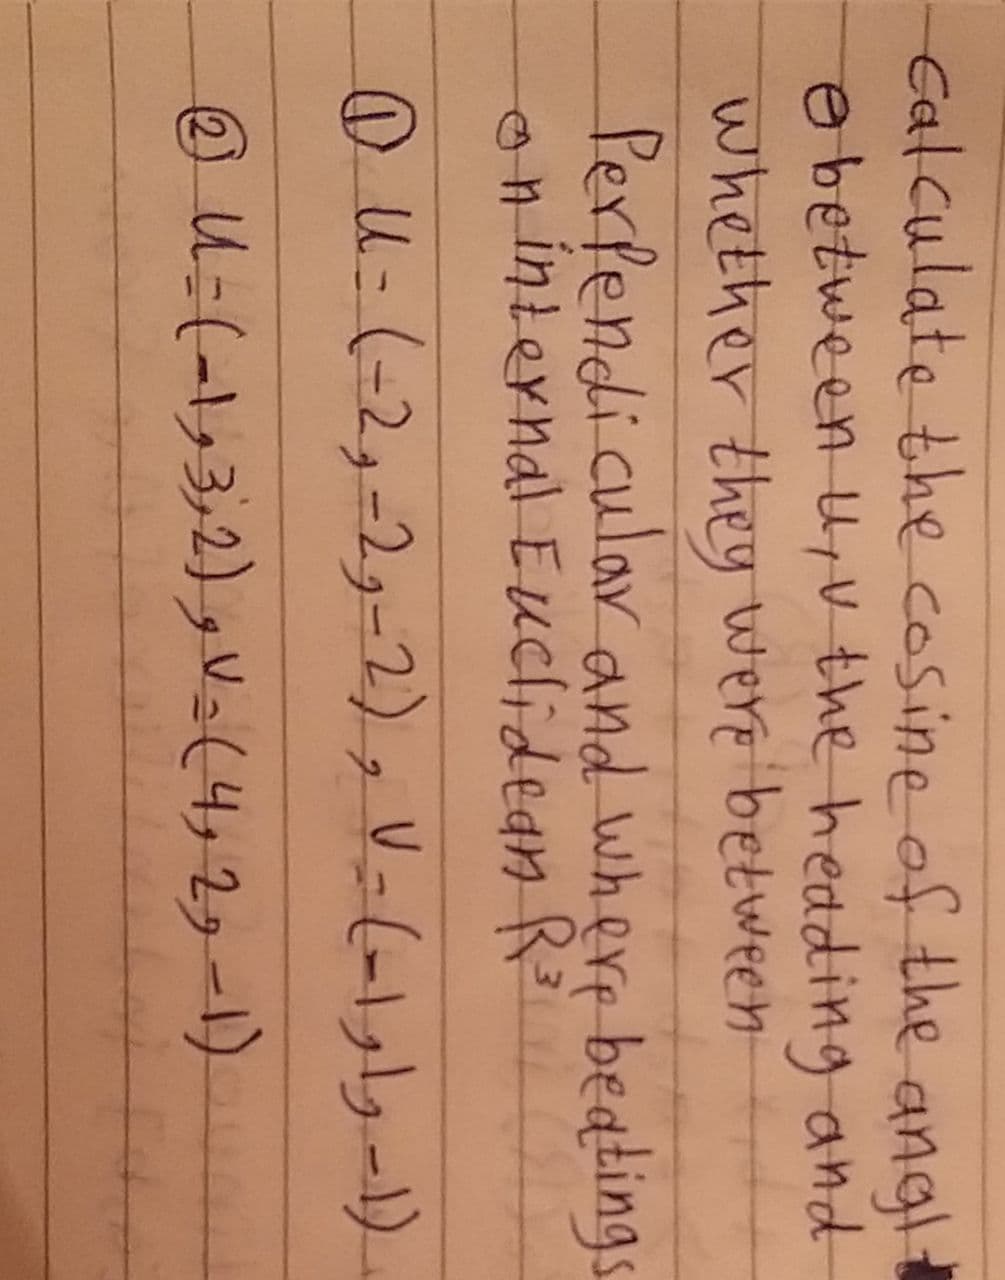 calculate the cosine of the angle
θ between u,v the heading and
whether they were between
Perpendicular and where beatings
on internal Euclidean R³
① u=(-2,-2,-2), v=(-1,1,-1)
② u=(-1,3,2), v=(4,2,-1)